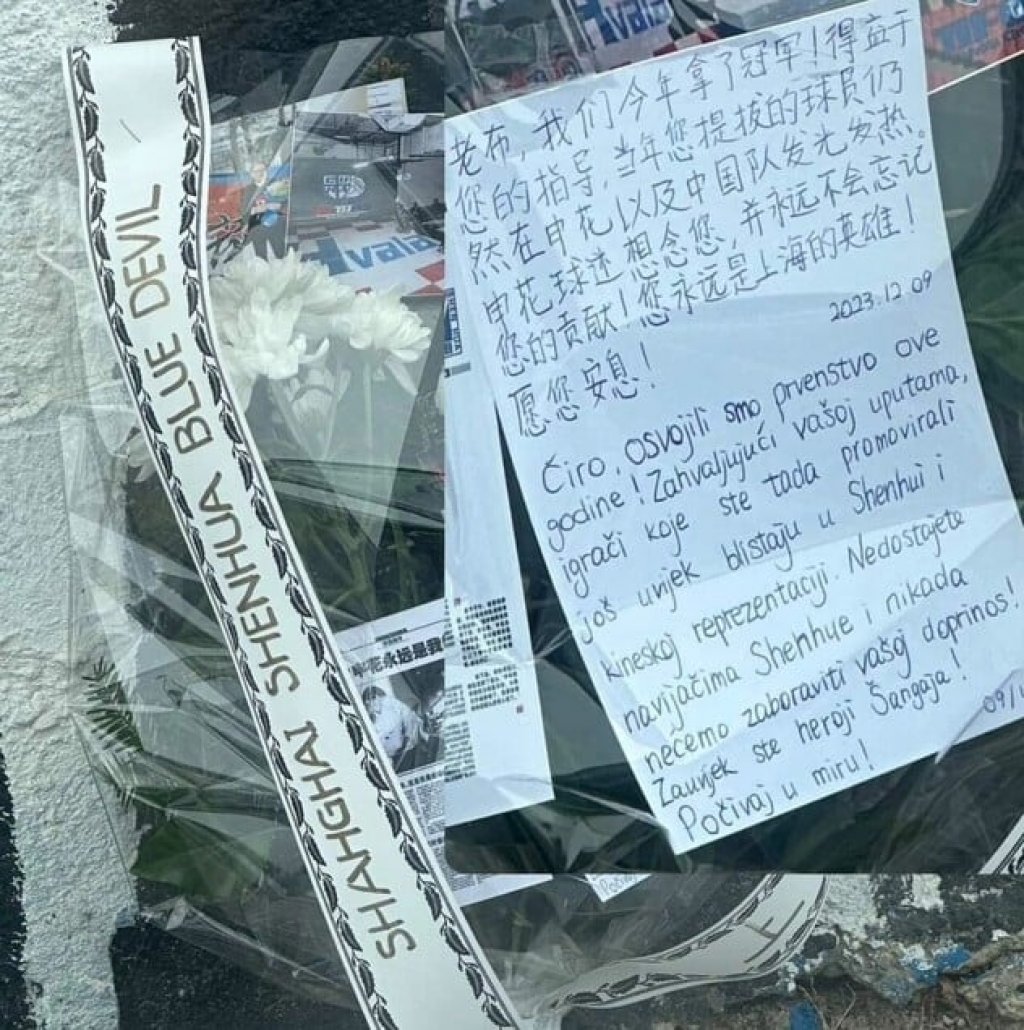 SHAHGHAI SHENHUA BLUE DEVIL
老布，我们今年拿了冠军！得益于
您的指导，当年您提拔的球员仍
然在申花以及中国队发光发热。
申花球迷想念您，并永远不会忘记
您的贡献！您永远是上海的英雄！
愿您安息！
2023.12.09
Ćiro, osvojili smo prvenstvo ove
godine! Zahvaljujući vašoj uputama,
igrači koje ste tada promovirali
još uvjek blistaju u Shenhui i
kineskoj reprezentaciji. Nedostajete
navijačima Shenhue i nikada
nećemo zaboraviti vašoj doprinos!
Zauvjek ste heroji Šangaja!
Počivaj u miru!
09/1
Hvala
vala
花永远是我